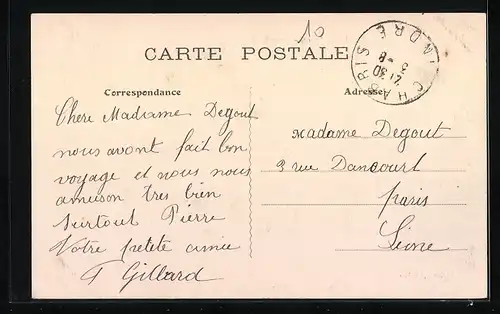 10
CARTE POSTALE
CHABRIS
INDRE
21 30
3 -8
Correspondance
Adresse
Chere Madame Degout
nous avont fait bon
voyage et nous nous
amuson tres bien
surtout Pierre
Votre petete amie
F Gillard
Madame Degout
9 rue Dancourt
paris
Seine